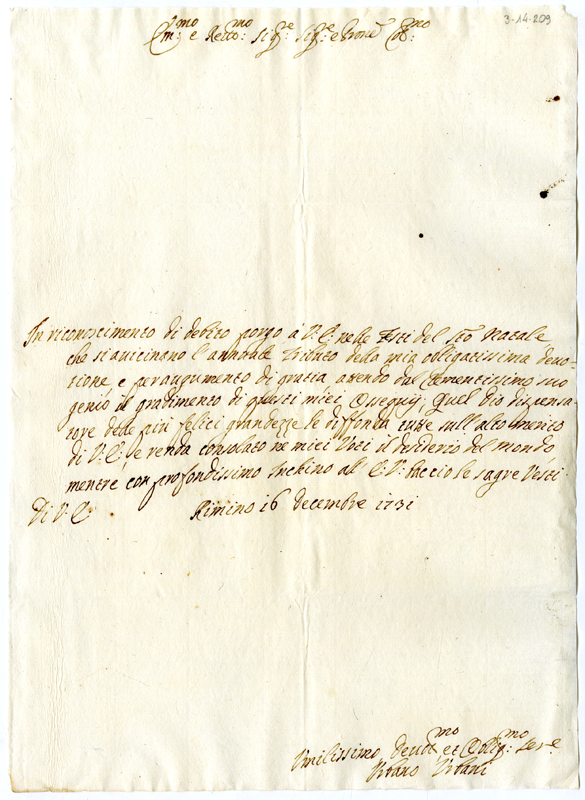 3-14-209
Em:mo e Reùo:mo Sig:re Sig:re e Prone Col:mo
In riconoscimento di debito porgo à V. E: nelle Feste del Sto Natale
che si auicinano l'annuale Tributo della mia obligatissima deuo-
tione, e per augumento di gratia attendo dal Clementissimo suo
genio il gradimento di questi miei Ossequij; Quel Dio dispensa-
tore delle più felici grandezze le diffonda tutte sull'alto merito
di V: E:, e renda consolato ne miei Voti il desiderio del mondo,
mentre con profondissimo Inchino all' E. V: baccio le sagre Vesti.
Di V. E: Rimino 16 Decembre 1731
Vmilissimo Deuot:mo et Oblig:mo Ser.e
Vrbano Vrbani